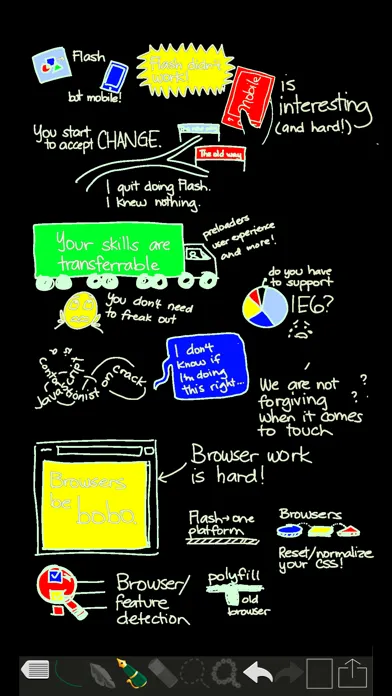 Flash
but mobile!
Flash didn't
work!
Mobile
is
interesting
(and hard!)
You start
to accept CHANGE.
The old way
I quit doing Flash.
I knew nothing.
Your skills are
transferrable
preloaders
user experience
and more!
You don't need
to freak out
do you have
to support
IE6?
JavaScript
is a
contortionist
on crack
I don't
know if
I'm doing
this right...
We are not
forgiving
when it comes
to touch
? ? ?
Browsers
be
boba
Browser work
is hard!
Flash → one
platform
Browsers
Reset/normalize
your CSS!
Browser/
feature
detection
polyfill
old
browser